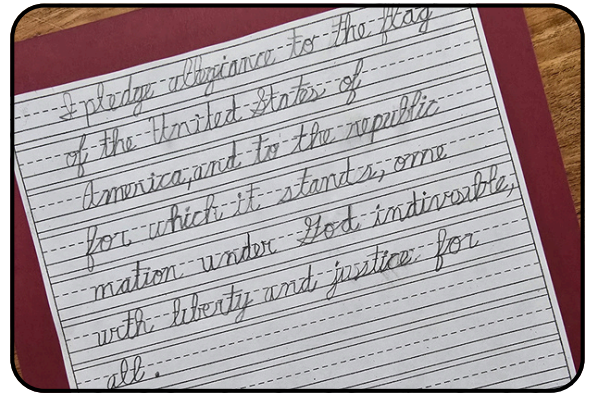 I pledge allegiance to the flag
of the United States of
America, and to the republic
for which it stands, ome
mation under God indivisible,
with liberty and justice for
all.